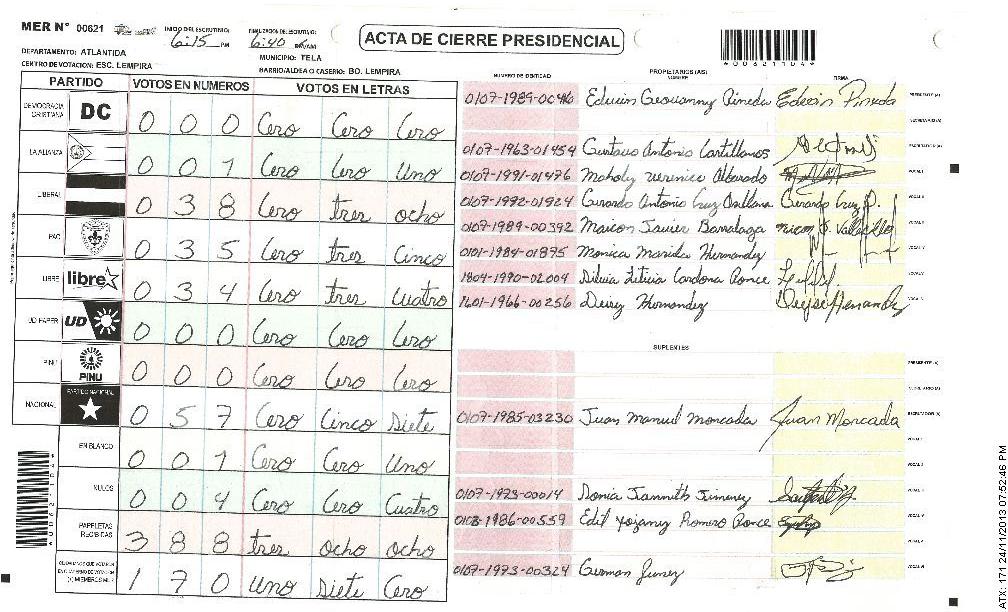 MER Nº 00621
INICIO DEL ESCRUTINIO: 6:15 PM
FINALIZACION DEL ESCRUTINIO: 6:40
ACTA DE CIERRE PRESIDENCIAL
DEPARTAMENTO: ATLANTIDA
MUNICIPIO: TELA
CENTRO DE VOTACION: ESC. LEMPIRA
BARRIO/ALDEA O CASERIO: BO. LEMPIRA
0062110 4
PARTIDO VOTOS EN NUMEROS VOTOS EN LETRAS
DEMOCRACIA CRISTIANA DC 0 0 0 Cero Cero Cero
LA ALIANZA 0 0 1 Cero Cero Uno
LIBERAL 0 3 8 Cero tres ocho
PAC 0 3 5 Cero tres Cinco
LIBRE libre 0 3 4 Cero tres Cuatro
UD FAPER UD 0 0 0 Cero Cero Cero
PINU PINU 0 0 0 Cero Cero Cero
NACIONAL PARTIDO NACIONAL 0 5 7 Cero Cinco Siete
EN BLANCO 0 0 1 Cero Cero Uno
NULOS 0 0 4 Cero Cero Cuatro
PAPELETAS RECIBIDAS 3 8 8 tres ocho ocho
1 7 0 Uno Siete Cero
NUMERO DE IDENTIDAD PROPIETARIOS (AS) NOMBRE FIRMA
0107-1989-00416 Edwin Geovanny Pineda Edwin Pineda
0107-1963-01454 Gustavo Antonio Castellanos
0107-1991-01476 Maholy Verenice Alvarado
0107-1992-01924 Gerardo Antonio Cruz Orellana Gerardo Cruz O.
0107-1989-00392 Marcon Javier
0101-1984-01875 Monica Mariela Hernandez
1804-1990-02004 Silvia Leticia Cardona Ponce
1601-1966-00256 Deisy Hernandez Deysi Hernandez
SUPLENTES
0107-1985-03230 Juan Manuel Moncada Juan Moncada
0107-1973-00014 Sonia Jannith Jimenez
0103-1986-00559 Edil Yozany Romero Ponce
0107-1973-00324 German Junez
ATX 171 24/11/2013 07:52:46 PM